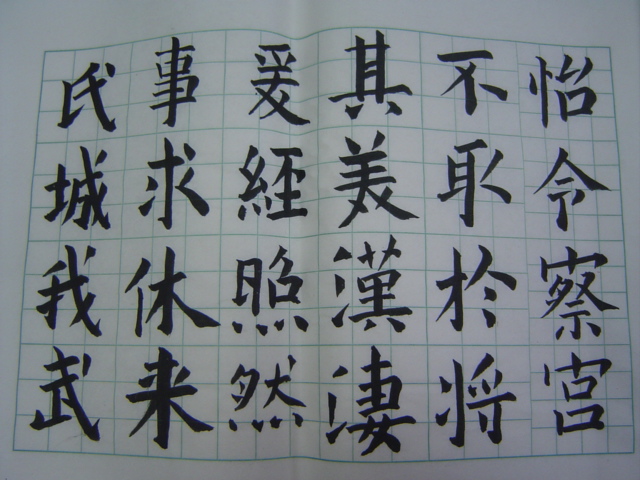 怡令察宫
不取於将
其美漢凄
爰經照然
事求休来
氏城我武